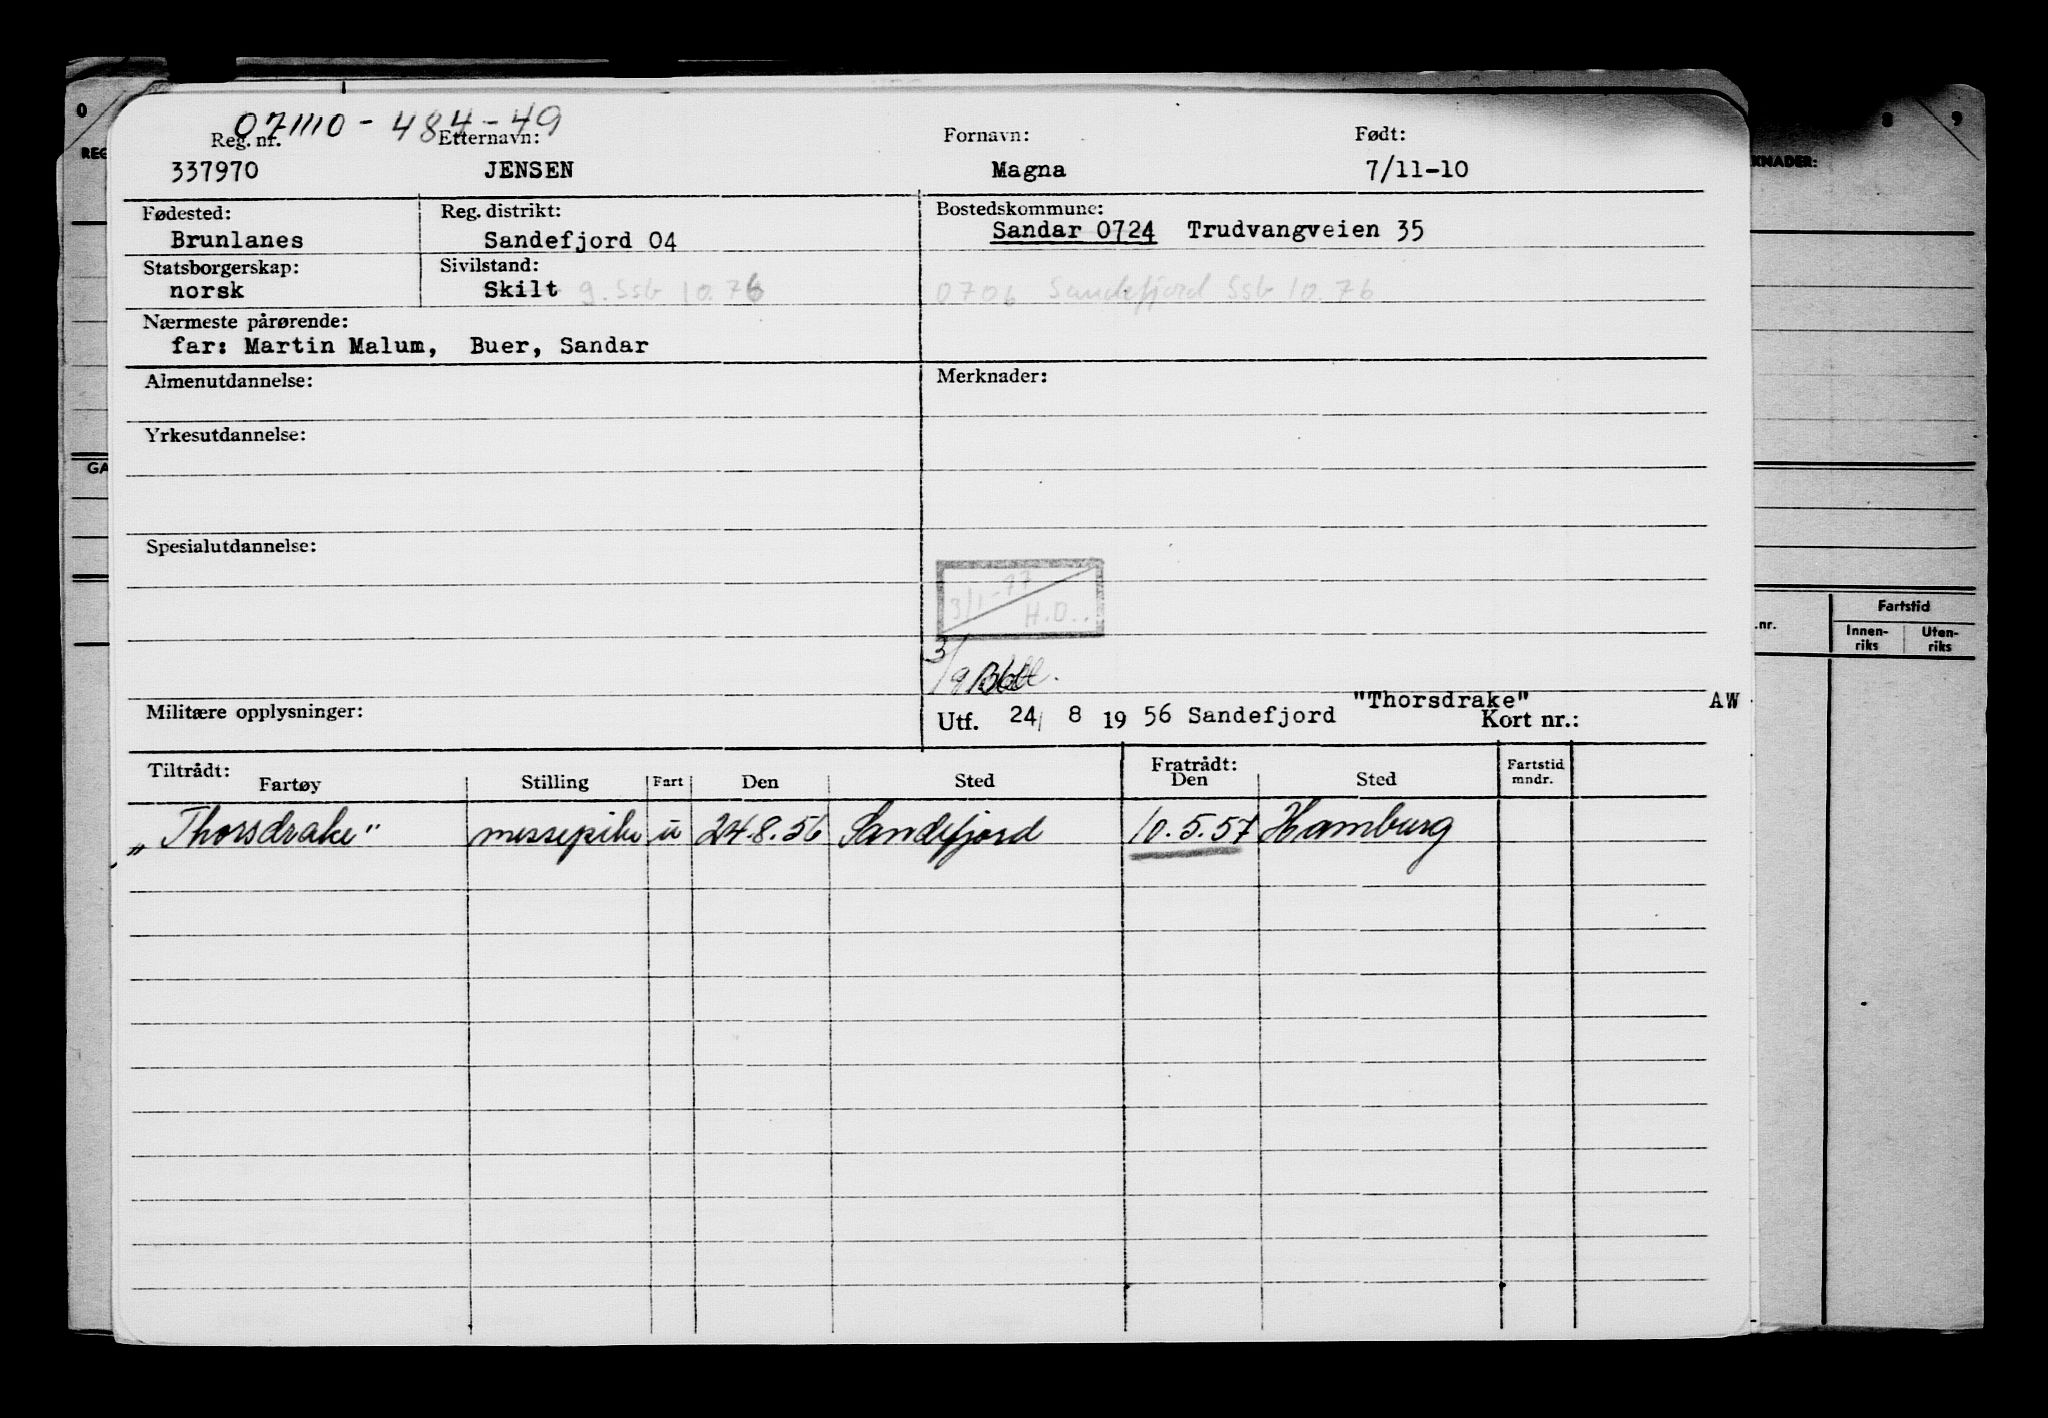 071110 - 484-49
Reg. nr. Etternavn: Fornavn: Født:
337970 JENSEN Magna 7/11-10
Fødested: Reg. distrikt: Bostedskommune:
Brunlanes Sandefjord 04 Sandar 0724 Trudvangveien 35
Statsborgerskap: Sivilstand:
norsk Skilt g. Ssb 10.76 0706 Sandefjord Ssb 10.76
Nærmeste pårørende:
far: Martin Malum, Buer, Sandar
Almenutdannelse: Merknader:
Yrkesutdannelse:
Spesialutdannelse:
3/1-77
H.O..
3/9
Militære opplysninger: Utf. 24/ 8 19 56 Sandefjord "Thorsdrake" Kort nr.: AW
Tiltrådt: Fratrådt:
Fartøy Stilling Fart Den Sted Den Sted Fartstid mndr.
„Thorsdrake" messepike u 24.8.56 Sandefjord 10.5.57 Hamburg
0
REG
GA
8 9
KNADER:
.nr. Fartstid
Innen-riks Uten-riks